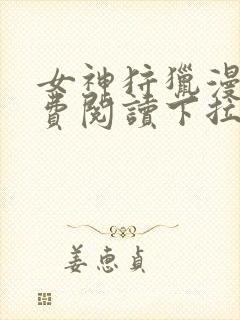 女神狩獵漫
費閱讀下拉
姜惠貞